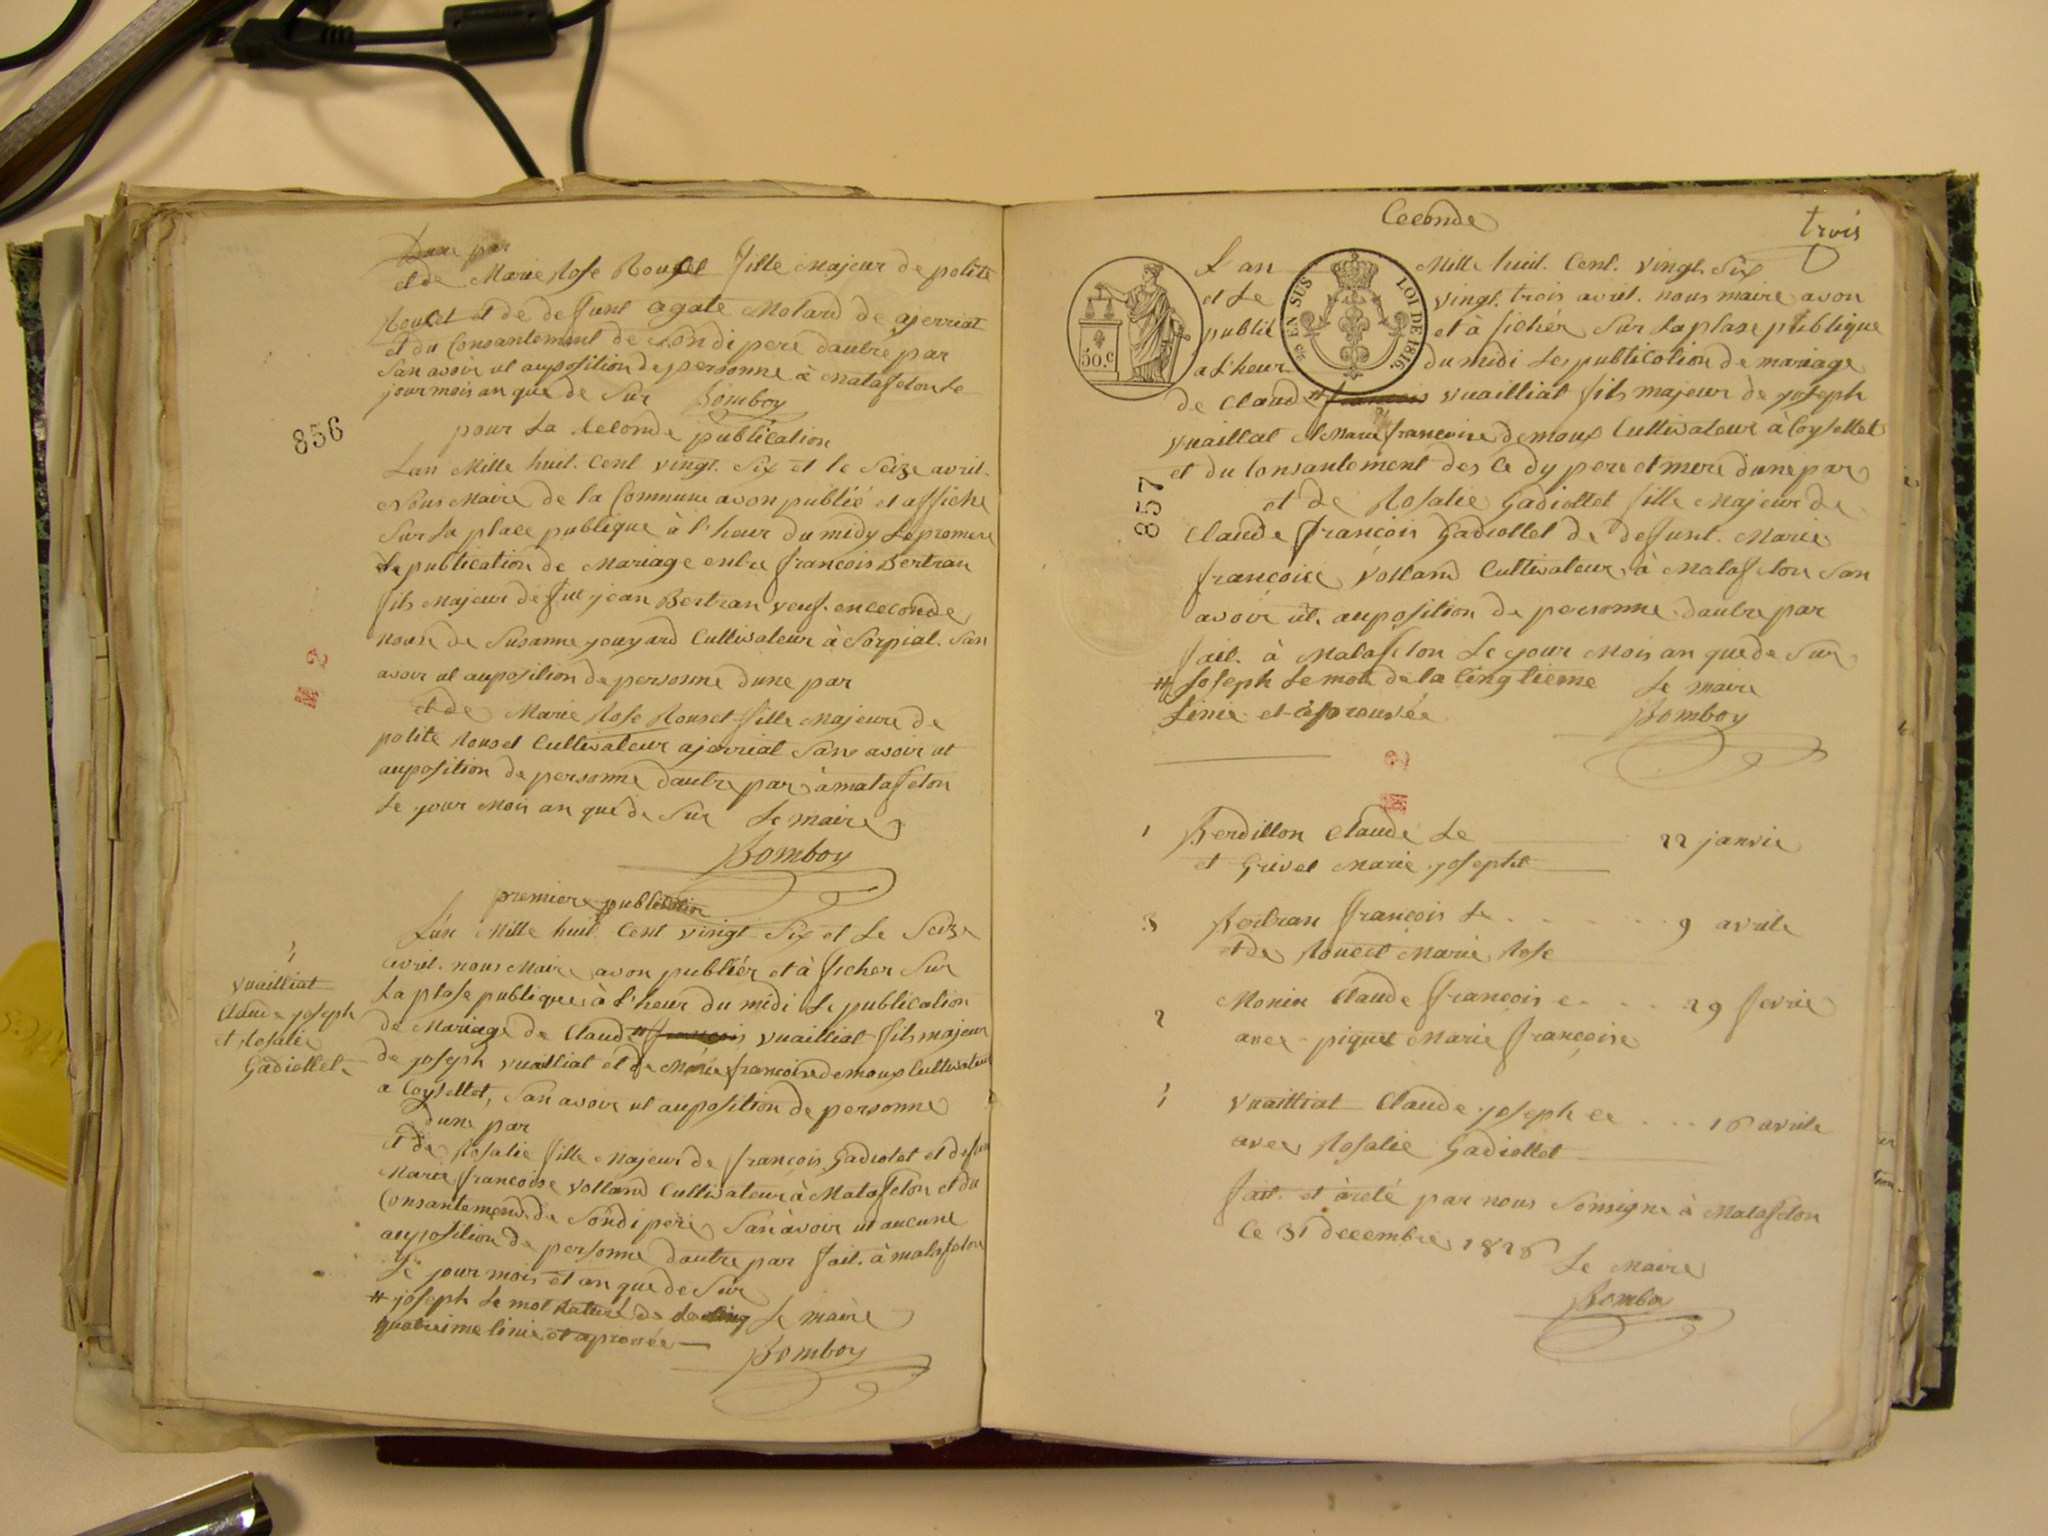 Dune par
et de Marie Rose Rousel fille Majeur de polite
Roucet et de deffunt agate Molard de ajerriat
et du Consantement de Sondi pere dautre par
San avoir ut auposition de personne à Matafelon Le
jour mois an que de Sur Bomboy
856
pour La Ceconde publication
Lan Mille huit Cent vingt Six et le Seize avril
Nous Maire de la Commune avon publié et affiche
Sur La place publique à l'heur du midy Le promiere
publication de Mariage entre françois Bertran
fils Majeur de feu jean Bertran veuf en ceconde
nonse de Susanne jouyard Cultivateur à Corpiat San
avoir ut auposition de personne dune par
et de Marie Rose Rouset fille Majeure de
polite Rouset Cultivateur ajerriat San avoir ut
auposition de personne dautre par à matafelon
Le jour Mois an que de Sur Le maire
Bomboy
premiere publication
Lan Mille huit Cent vingt Six et Le Seize
avril nous Maire avon publiér et à ficher Sur
La plase publique à L'heur du midi Le publication
de Mariage de Claude # françois vuailliat fils majeur
de joseph vuailliat et de Marie françoise demoux Cultivateur
a Coyselet, San avoir ut auposition de personne
dune par
et de Rosalie fille Majeur de françois Gadiolet et deffun
Marie françoise volland Cultivateur à Matafelon et du
Consantement de Sondi pere San avoir ut aucune
auposition de personne dautre par fait à matafelon
Le jour mois et an que de Sur
# joseph Le mot de Le maire
quatrieme linie et aprouvée Bomboy
vuailliat
Claude joseph
et Rosalie
Gadiollet
Ceconde
trois
50.c
EN SUS
LOI DE 1816
Lan Mille huit Cent vingt Six
et Le vingt trois avril nous maire avon
publié et à fichér Sur La plase publique
a L'heur du midi Les publication de mariage
de Claude # françois vuailliat fils majeur de joseph
vuaillat et Marie françoise demoux Cultivateur à Coyselet
et du Consantement des Ce dy pere et mere dune par
857
et de Rosalie Gadiollet fille Majeur de
Claude françois Gadiollet de deffunt Marie
françoise volland Cultivateur à Matafelon San
avoir ut auposition de personne dautre par
fait à Matafelon Le jour Mois an que de Sur
# joseph Le mot de la Cinqtieme Le maire
Linie et àprouvée Bomboy
1 Berdillon Claude Le 22 janvie
et Grivel Marie josephte
3 Bertran françois Le 9 avrile
et de Roucet Marie Rose
2 Monin Claude françois e 29 fevrie
avec piquet Marie françoise
vuailliat Claude joseph Le 16 avrile
avec Rosalie Gadiollet
fait et àreté par nous Sousigne à Matafelon
Ce 31 decembre 1826
Le Maire
Bomboy